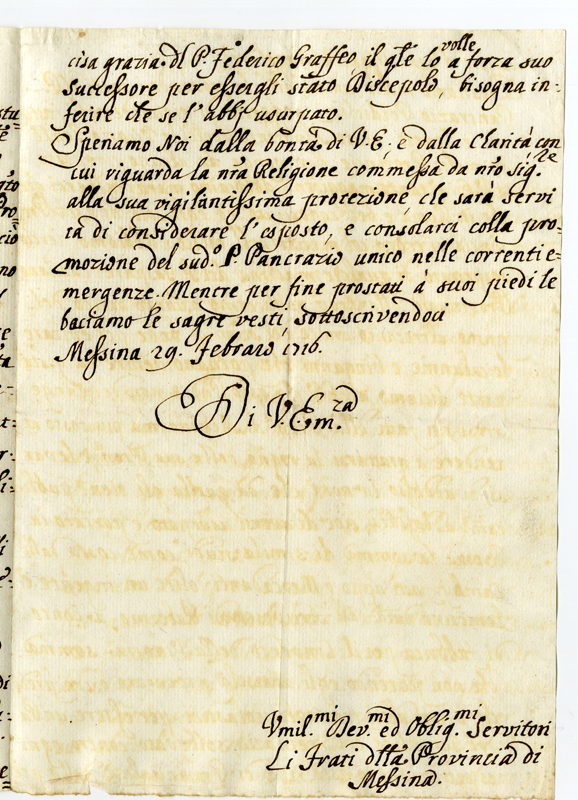 cisa grazia. Dl P. Federico Graffeo il qle lo volle a forza suo
successore per essergli stato Discepolo, bisogna in=
ferire che se l'abbi usurpato.
Speriamo Noi dalla bontà di V.E. e dalla Charità con
cui riguarda la nra Religione commessa da nro Sig.re
alla sua vigilantissima protezione, che sarà servi
ta di considerare l'esposto, e consolarci colla pro=
mozione del sud.o P. Pancrazio unico nelle correnti e=
mergenze. Mentre per fine prostati à suoi piedi le
baciamo le sagre vesti, sottoscrivendoci
Messina 29. Febraro 1716.
Di V. Em.za
Vmil.mi Dev.mi ed Oblig.mi Servitori
Li Frati dlla Provincia di
Messina.